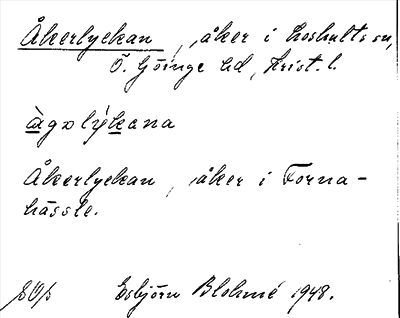 Åkerlyckan, åker i Loshults sn,
Ö. Göinge hd, Krist. l.
àgəlýkana
Åkerlyckan, åker i Forna-
hässle.
Esbjörn Blohmé 1948.